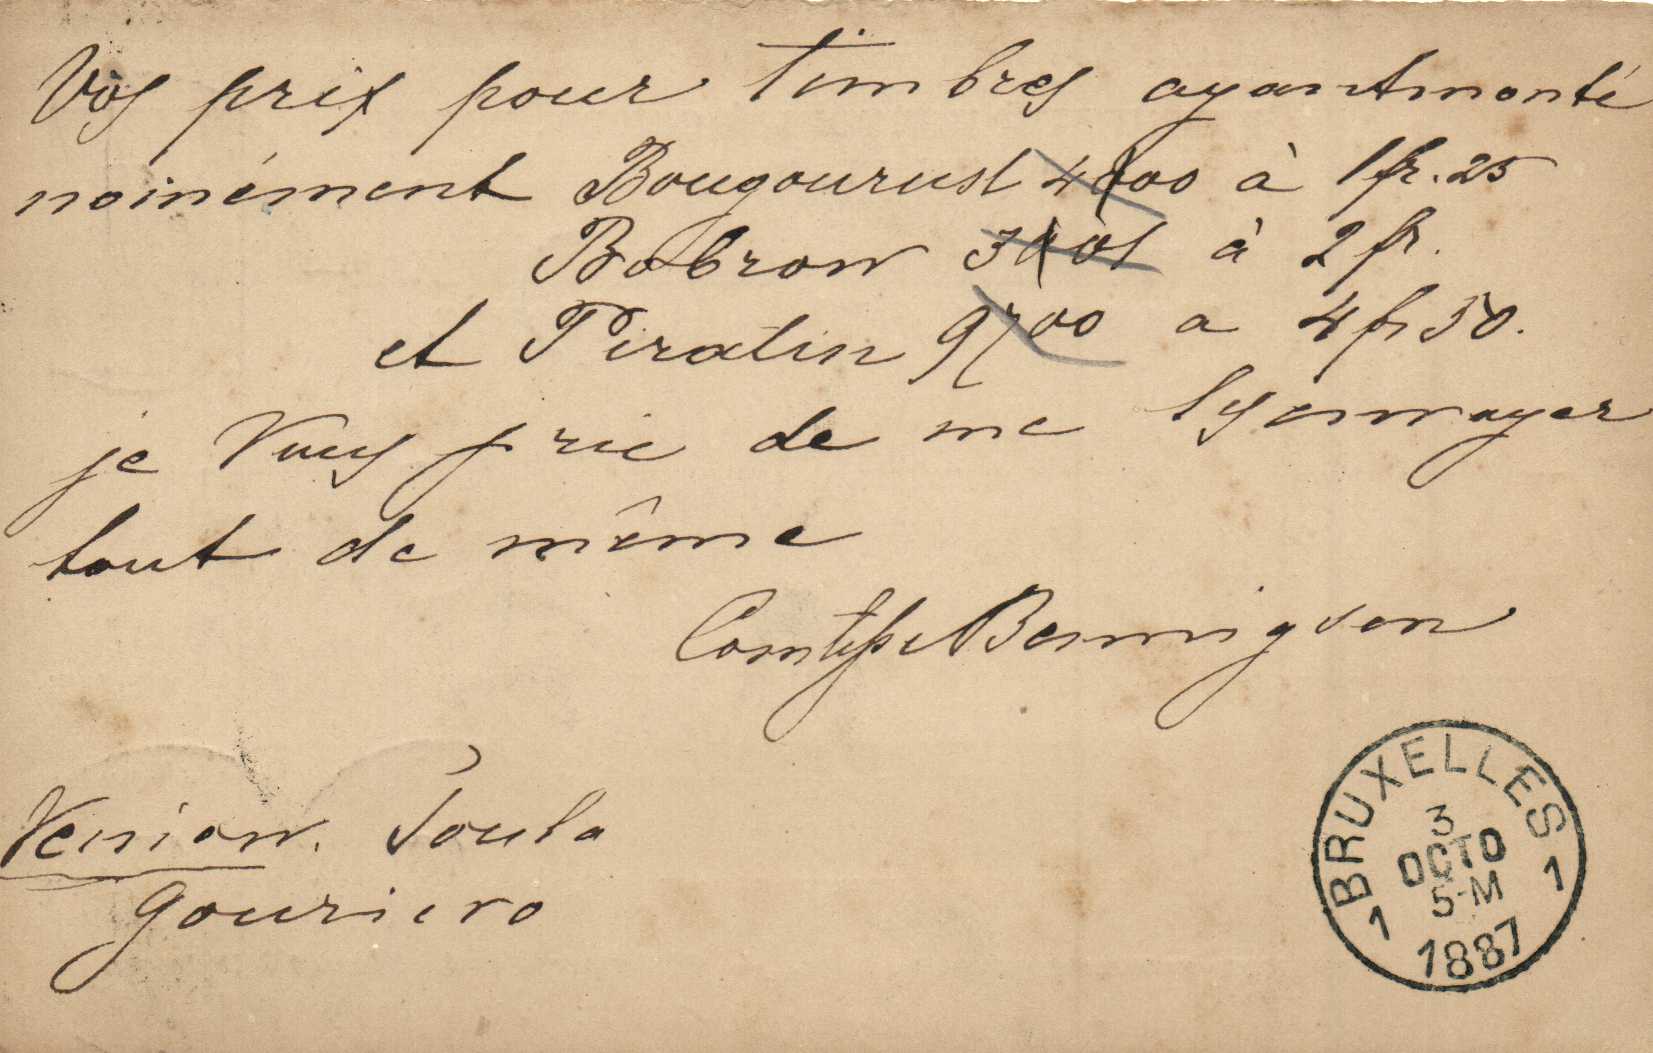 Vos prix pour timbres ayant monté
noinément Bougourusl 4000 à 1 fr. 25
Bobrow à 2 fr.
et Piratin 9700 a 4 fr 50.
je Vous prie de me les envoyer
tout de même
Comtesse Bennigsen
Venion. Poula
gouriero
BRUXELLES
3
OCTO
5-M
1 1
1887